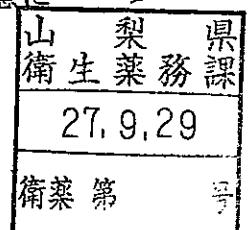 山梨県
衛生薬務課
27.9.29
衛薬第 号